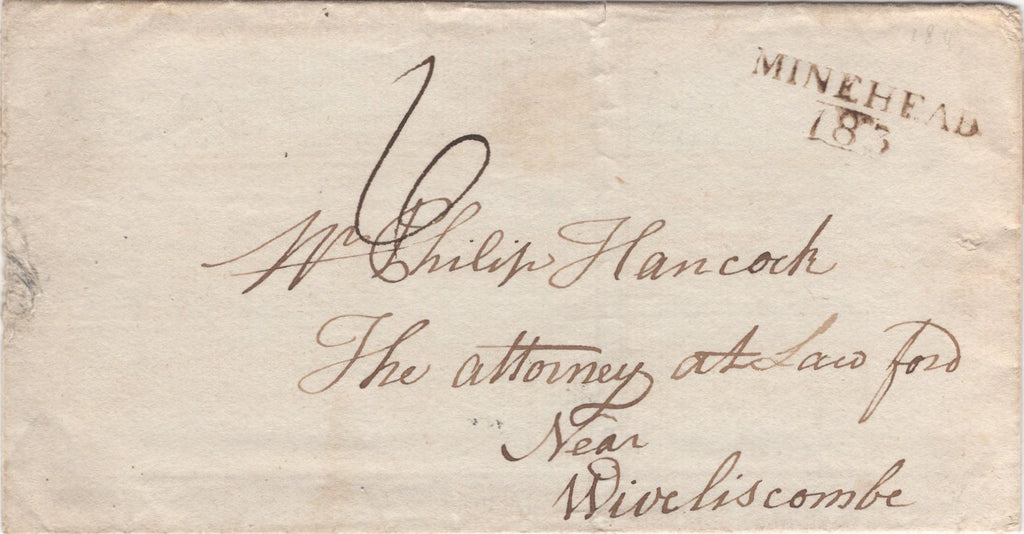 MINEHEAD
183
6
Mr Philip Hancock
The attorney at Law ford
Near
Wiveliscombe